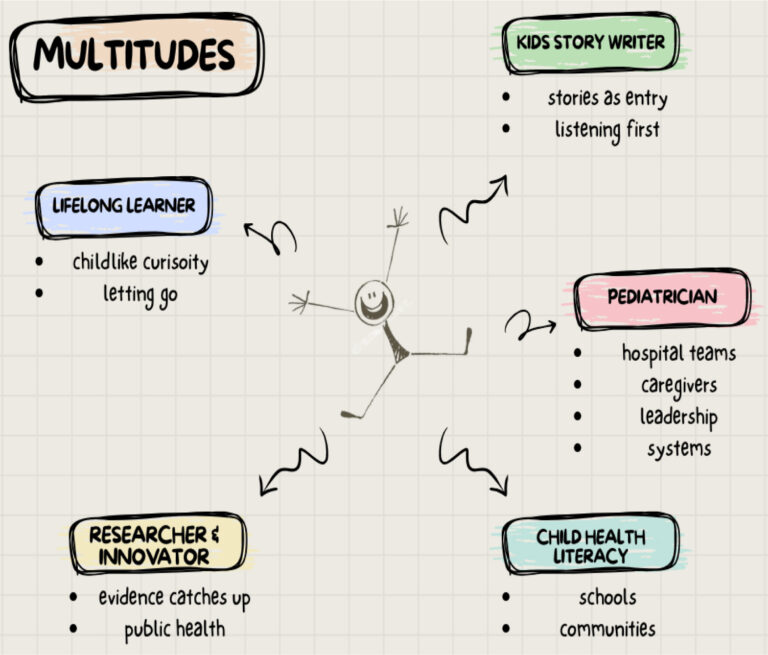 MULTITUDES
KIDS STORY WRITER
• stories as entry
• listening first
LIFELONG LEARNER
• childlike curisoity
• letting go
PEDIATRICIAN
• hospital teams
• caregivers
• leadership
• systems
RESEARCHER &
INNOVATOR
• evidence catches up
• public health
CHILD HEALTH
LITERACY
• schools
• communities